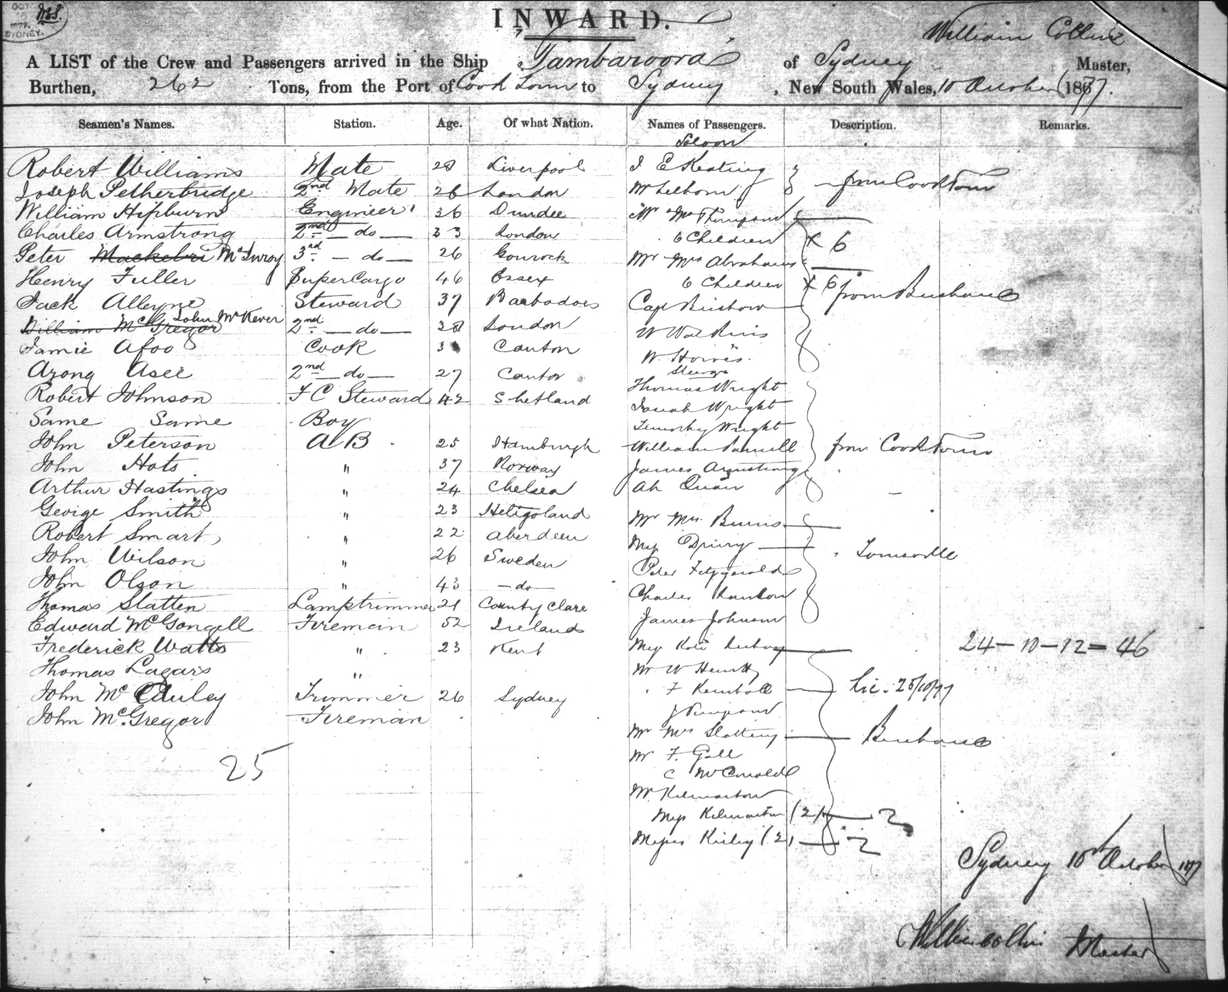 INWARD.
William Collins
A LIST of the Crew and Passengers arrived in the Ship "Tambaroora" of Sydney Master,
Burthen, 262 Tons, from the Port of Cook Town to Sydney, New South Wales, 10 October 1877.
Seamen's Names. Station. Age. Of what Nation. Names of Passengers. Description. Remarks.
Saloon
Robert Williams Mate 28 Liverpool J E Keating
Joseph Petherbridge 2nd Mate 26 London Mr from Cooktown
William Hipburn Engineer 36 Dundee Mr Mrs Thompson
Charles Armstrong 2nd — do — 33 London 6 Children × 6
Peter Mackelvie McInroy 3rd — do — 26 Gourock Mr Mrs Abrahams
Henry Fuller SuperCargo 46 Essex 6 Children × 6
Jack Alleyne Steward 37 Barbadoes Cap from Brisbane
William McGregor John McKever 2nd — do — 28 London W Watkins
Jamie Afoo Cook 3 Canton W.
Steerage
Arong Asee 2nd — do — 27 Canton Thomas Wright
Robert Johnson F C Steward 42 Shetland Isaiah Wright
Same Same Boy Timothy Wright
John Peterson AB 25 Hamburgh William from Cooktown
John Hots " 37 Norway James Armstrong
Arthur Hastings " 24 Chelsea Ah Quan
George Smith " 23 Heligoland Mr Mrs Burns
Robert Smart " 22 Aberdeen Miss
John Wilson " 26 Sweden Peter Fitzgerald Townsville
John Olson " 43 — do — Charles
Thomas Slatten Lamptrimmer 21 County Clare James Johnson
Edward McGongell Fireman 52 Ireland
Frederick Watts " 23 Kent Miss 24 — 10 — 12 = 46
Thomas Lagars " Mr W
John McCauley Trimmer 26 Sydney F Kemball Lic. 25/10/77
John McGregor Fireman J Simpson
Mr Mrs Slattery Brisbane
25
Mr F. Gall
C McDonald
Mr Kilmartin
Miss Kilmartin (2) 2
Misses (2) 2
Sydney 10th October 1877
William Collins Master